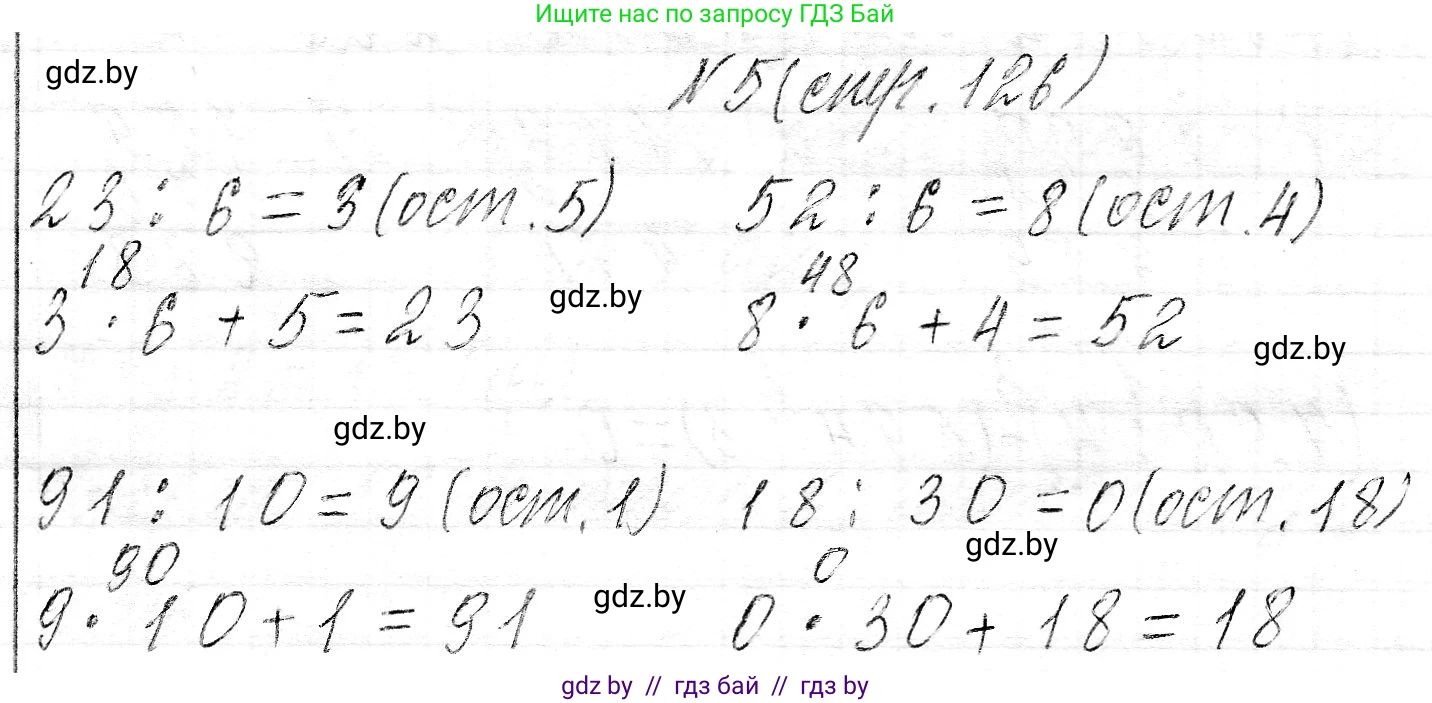 Ищите нас по запросу ГДЗ Бай
gdz.by
№5 (стр. 126)
23 : 6 = 3 (ост. 5) 52 : 6 = 8 (ост. 4)
18 48
3 · 6 + 5 = 23 gdz.by 8 · 6 + 4 = 52 gdz.by
gdz.by
91 : 10 = 9 (ост. 1) 18 : 30 = 0 (ост. 18)
90 0 gdz.by
9 · 10 + 1 = 91 gdz.by 0 · 30 + 18 = 18
gdz by // гдз бай // гдз by